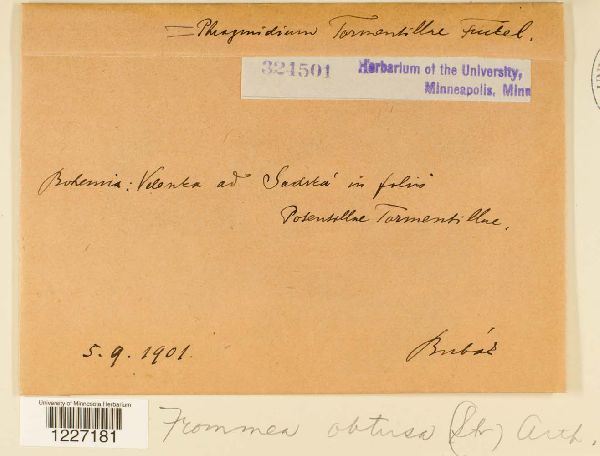 =Phragmidium Tormentillae Fuckel.
324501
Herbarium of the University,
Minneapolis, Minn
Bohemia: Velenka ad Sadská in foliis
Potentillae Tormentillae.
5. 9. 1901.
Bubák
University of Minnesota Herbarium
1227181
Frommea obtusa (Str) Arth.